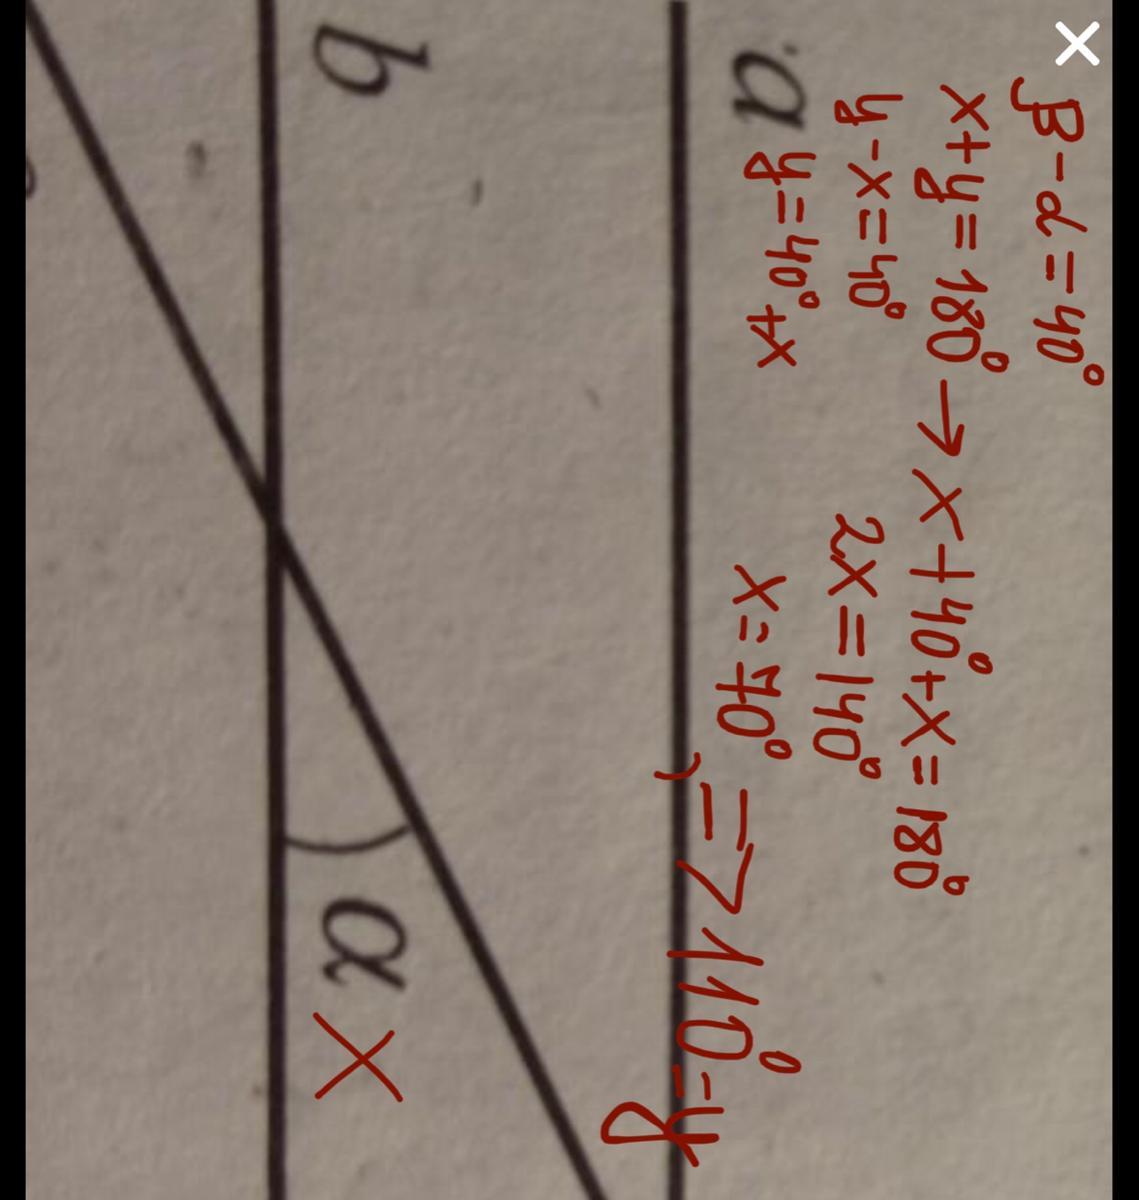 β-α=40°
x+y=180° → x+40°+x=180°
y-x=40°
2x=140°
y=40°+x
x=70° => 110°=y
a
b
α x